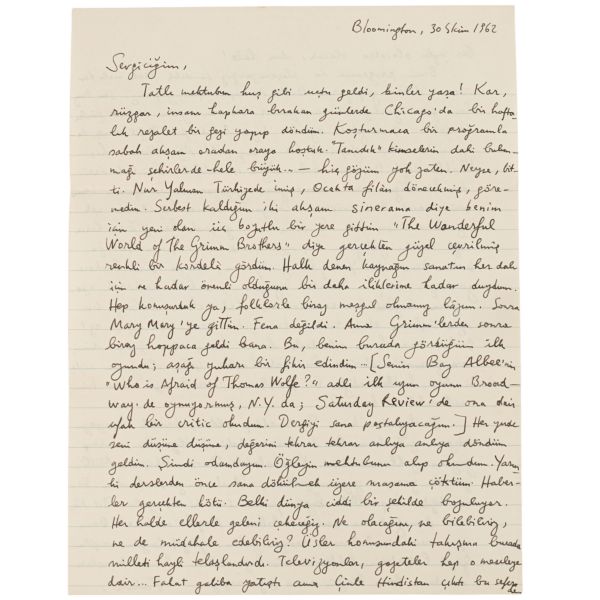 Bloomington, 30 Ekim 1962
Sevgiciğim,
Tatlı mektubun kuş gibi uçtu geldi, binler yaşa! Kar,
rüzgar, insanı kapkara bırakan günlerde Chicago'da bir hafta-
lık rezalet bir gezi yapıp döndüm. Koşturmaca bir programla
sabah akşam oradan oraya koştuk. "Tanıdık" kimselerin dahi bulun-
mağı şehirlerde - hele büyük... - hiç gözüm yok zaten. Neyse, bit-
ti. Nur Yalman Türkiyede imiş, Ocakta filân dönecekmiş, göre-
medim. Serbest kaldığım iki akşam sinerama diye benim
için yeni olan üç boyutlu bir yere gittim "The Wonderful
World of The Grimm Brothers" diye gerçekten güzel çevrilmiş
renkli bir kordelâ gördüm. Halk denen kaynağın sanatın her dalı
için ne kadar önemli olduğunu bir daha iliklerime kadar duydum.
Hep konuşurduk ya, folklorla biraz meşgul olmamız lâzım. Sonra
Mary Mary'ye gittim. Fena değildi. Ama Grimm'lerden sonra
biraz hoppaca geldi bana. Bu, benim burada gördüğüm ilk
oyundu; aşağı yukarı bir fikir edindim... [Senin Bay Albee'nin
"Who is Afraid of Thomas Wolfe?" adlı ilk uzun oyunu Broad-
way'de oynuyormuş, N.Y. da; Saturday Review'de ona dair
ufak bir critic okudum. Dergiyi sana postalıyacağım.] Her yerde
seni düşüne düşüne, değerini tekrar tekrar anlıya anlıya döndüm
geldim. Şimdi odamdayım. Öğleyin mektubunu alıp okudum. Yarın-
ki derslerden önce sana dökülmek üzere masama çöktüm. Haber-
ler gerçekten kötü. Belki dünya ciddi bir şekilde bozuluyor.
Her halde ellerle geleni çekeceğiz. Ne olacağını, ne bilebiliriz,
ne de müdahale edebiliriz? Üsler konusundaki tartışma burada
milleti hayli telaşlandırdı. Televizyonlar, gazeteler hep o meseleye
dair... Fakat galiba yatıştı ama Çinle Hindistan çıktı bu sefer de